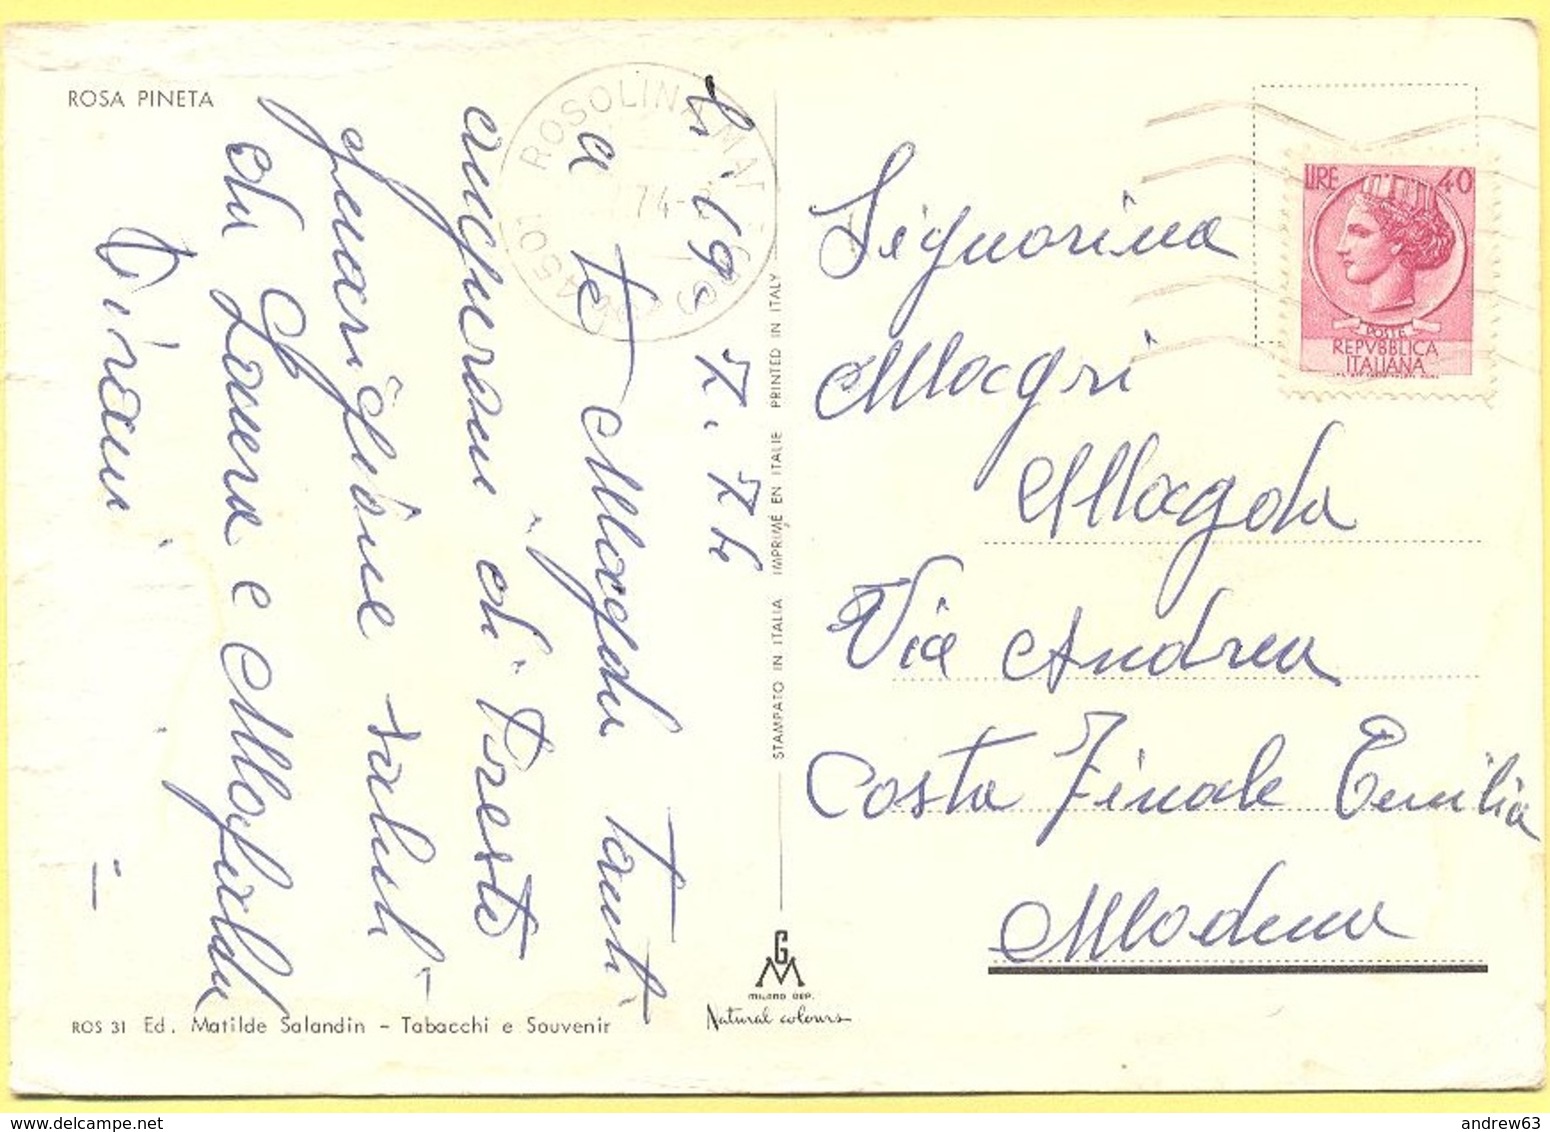 ROSA PINETA
li 19 7. 74
a te Magda tanti
auguroni di presto
guarigione saluti
da Laura e Mafalda
Tirini
ROS 31 Ed. Matilde Salandin - Tabacchi e Souvenir
ROSOLINA MAR
74
STAMPATO IN ITALIA IMPRIMÉ EN ITALIE PRINTED IN ITALY
GM
MILANO DEP.
Natural colours
LIRE 40
POSTE
REPVBBLICA
ITALIANA
Signorina
Magri
Magda
Via Andrea
Costa Finale Emilia
Modena
andrew63